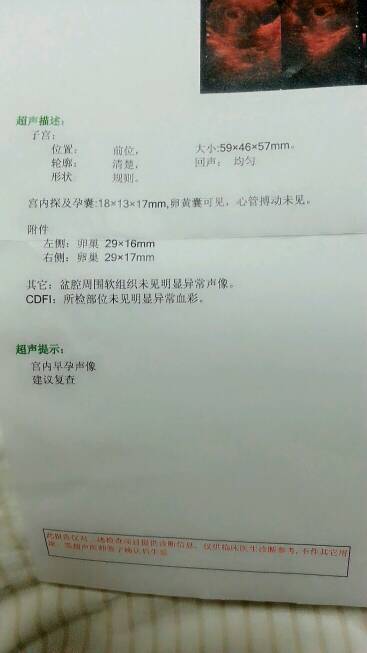 超声描述:
子宫:
位置: 前位, 大小:59×46×57mm。
轮廓: 清楚, 回声: 均匀
形状 规则。
宫内探及孕囊:18×13×17mm,卵黄囊可见，心管搏动未见。
附件
左侧: 卵巢 29×16mm
右侧: 卵巢 29×17mm
其它: 盆腔周围软组织未见明显异常声像。
CDFI: 所检部位未见明显异常血彩。
超声提示:
宫内早孕声像
建议复查
此报告仅对 述检查项目提供诊断信息，仅供临床医生诊断参考,不作其它用
超声医师签字确认后生效